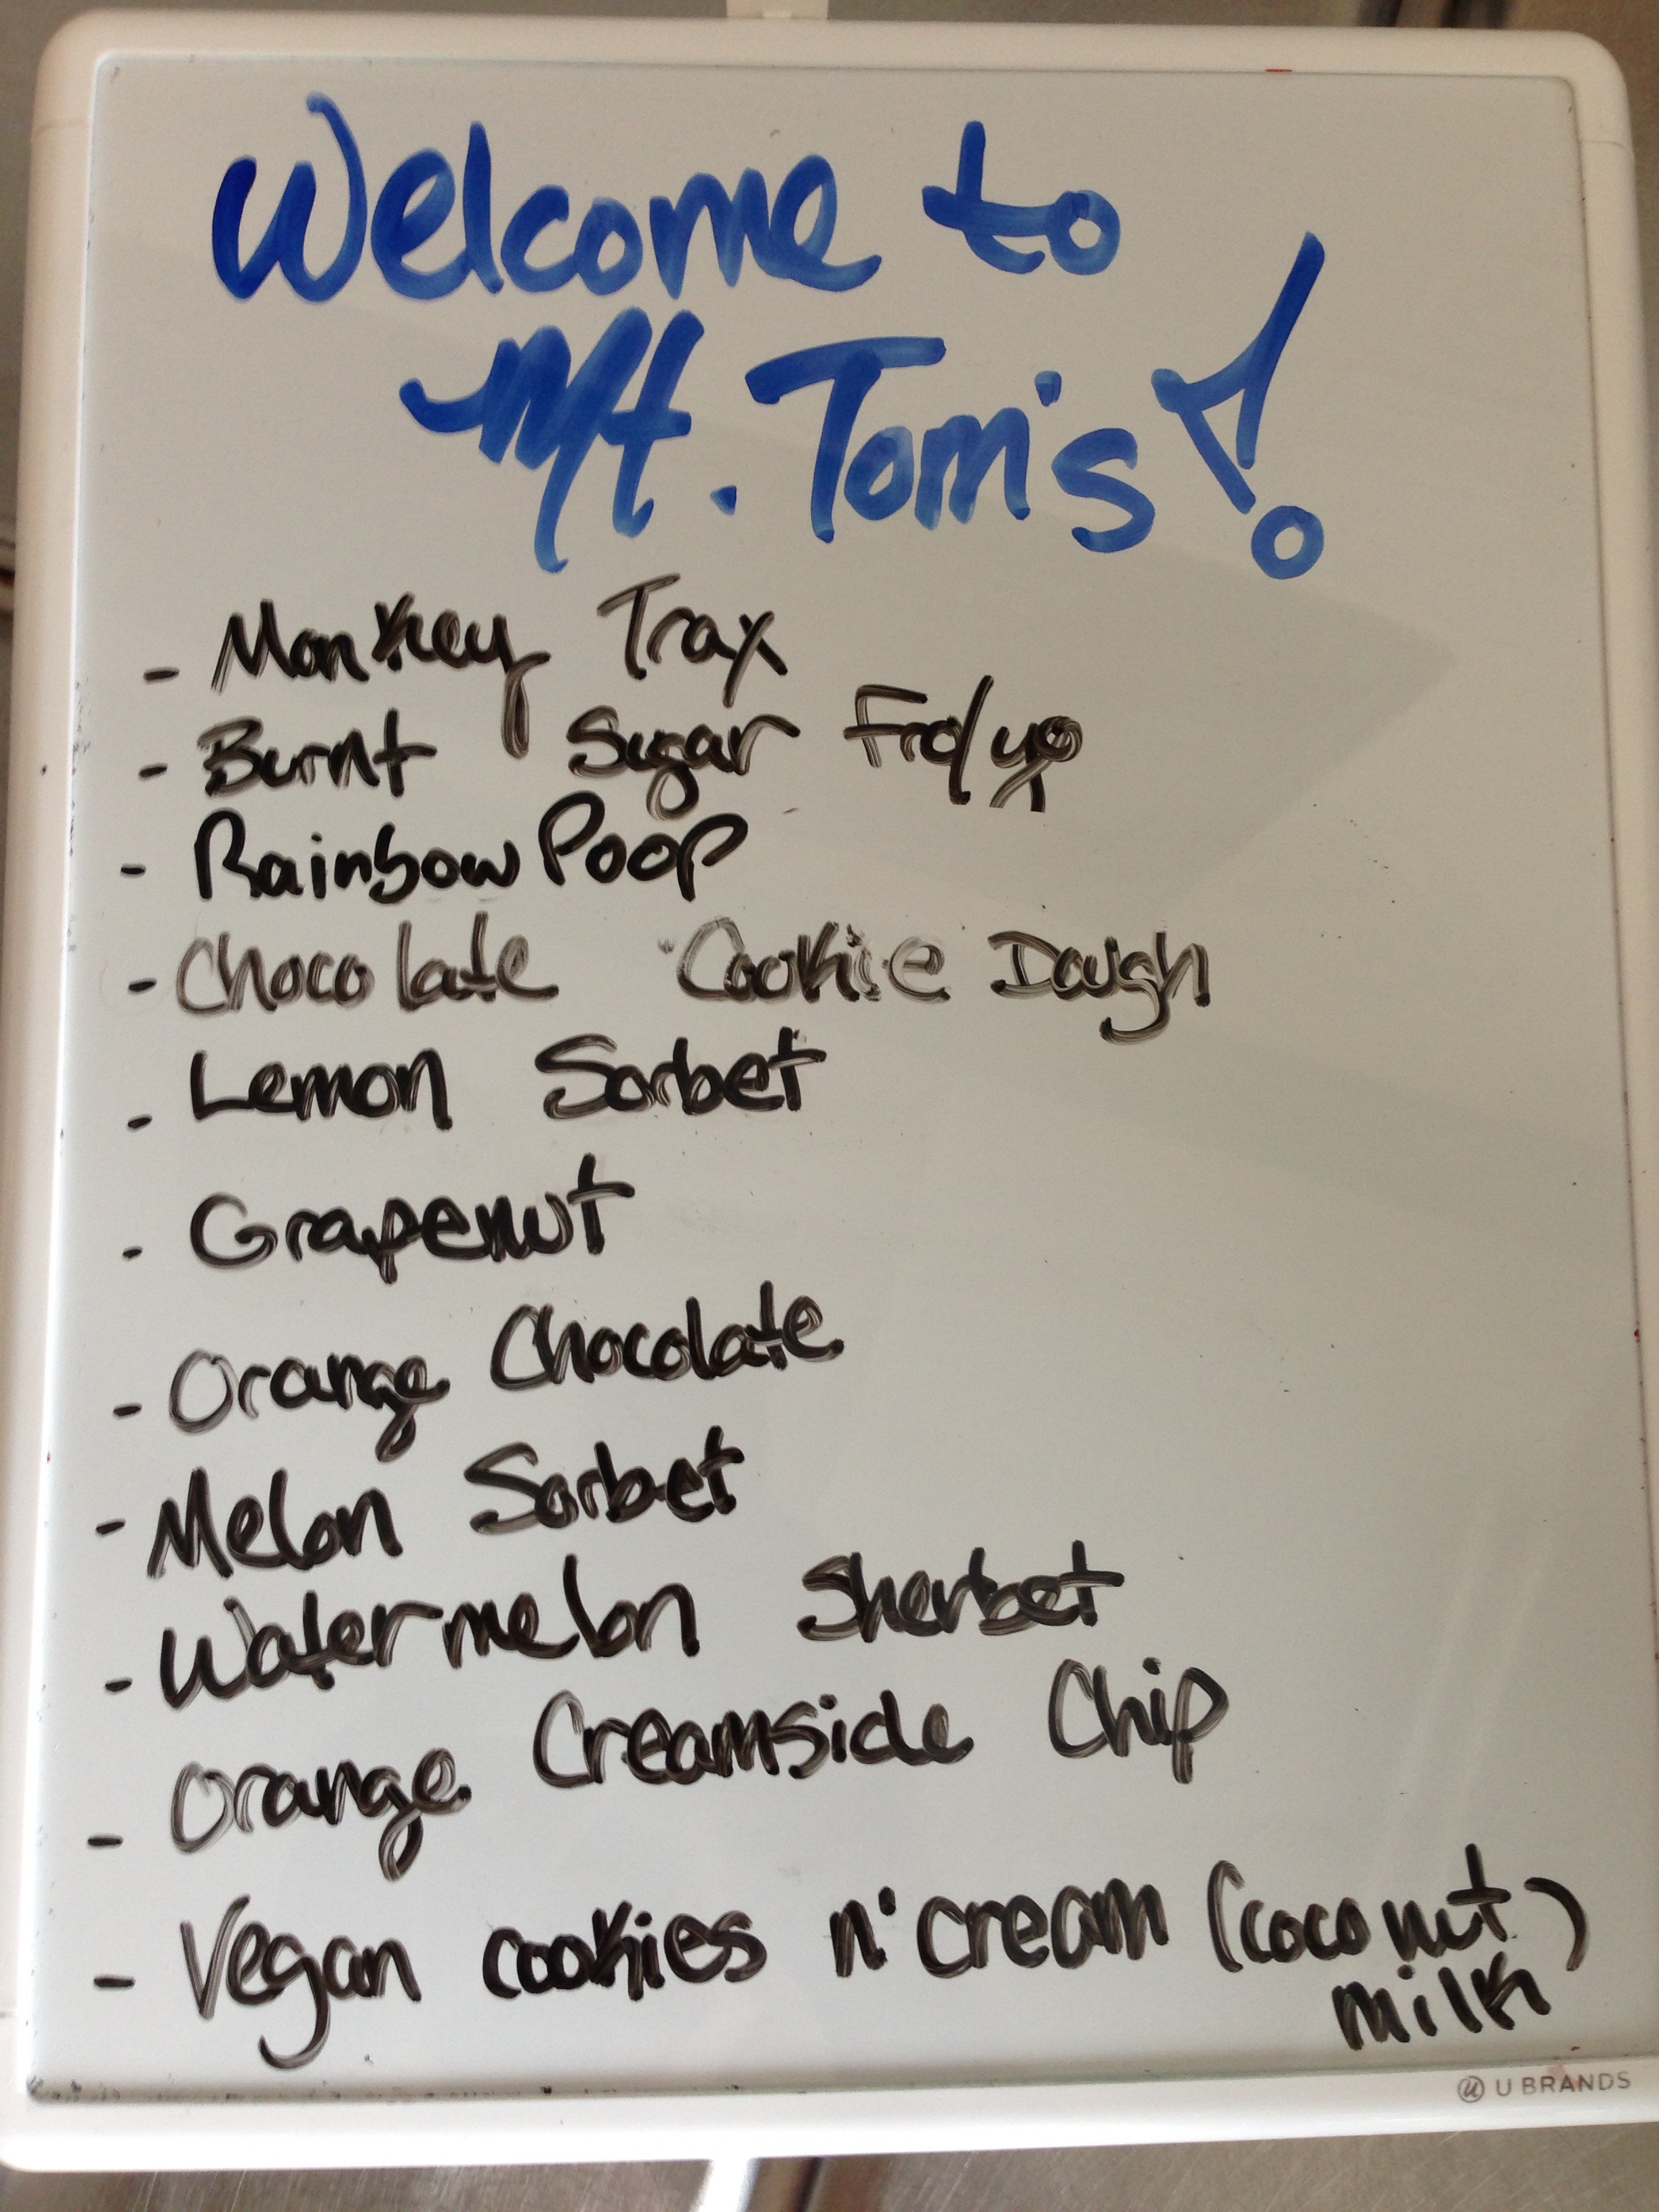 Welcome to
Mt. Tom's!
- Monkey Trax
- Burnt Sugar Fro/yo
- Rainbow Poop
- Chocolate Cookie Dough
- Lemon Sorbet
- Grapenut
- Orange Chocolate
- Melon Sorbet
- Watermelon Sherbet
- Orange Creamside Chip
- Vegan cookies n' cream (coconut
milk)
U BRANDS